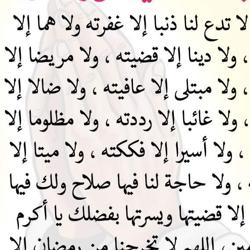 لا تدع لنا ذنبا إلا غفرته ولا هما إلا
، ولا دينا إلا قضيته ، ولا مريضا إلا
، ولا مبتلى إلا عافيته ، ولا ضالا إلا
، ولا غائبا إلا رددته ، ولا مظلوما إلا
، ولا أسيرا إلا فككته ، ولا ميتا إلا
، ولا حاجة لنا فيها صلاح ولك فيها
إلا قضيتها ويسرتها بفضلك يا أكرم
اللهم لا تخرجنا من رمضان إلا